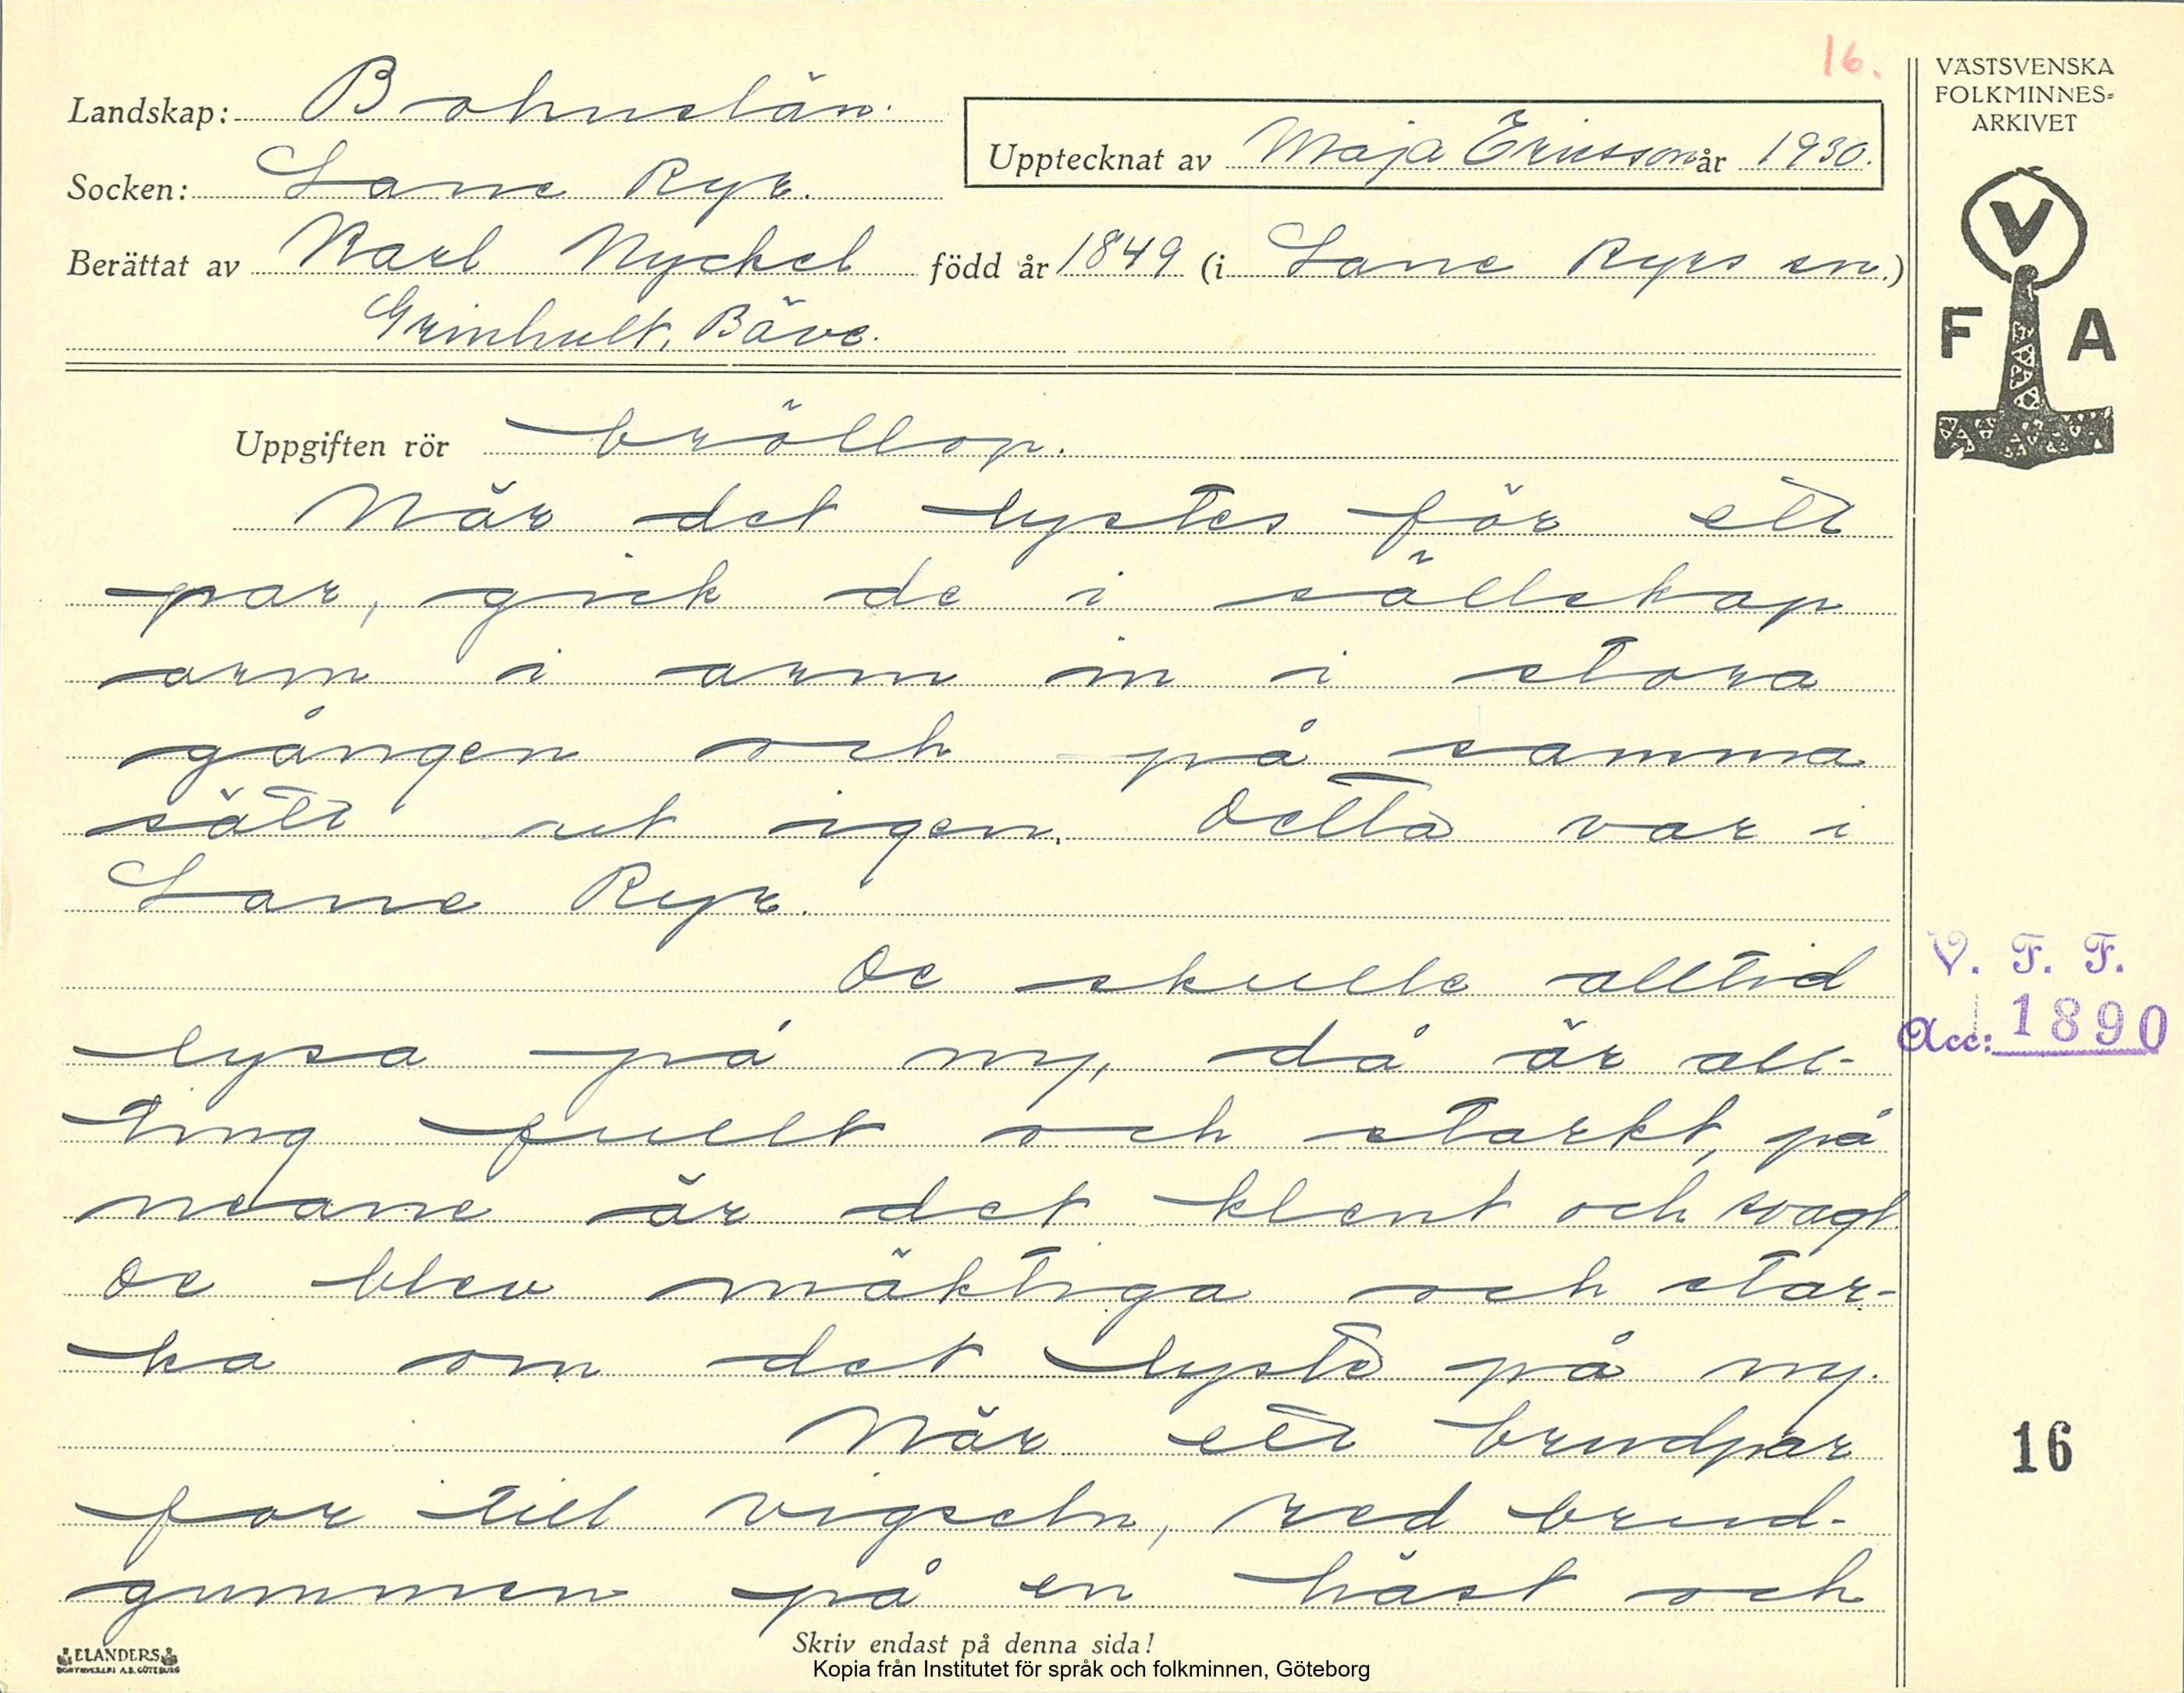 16.
Landskap: Bohuslän.
Socken: Lane Ryr.
Upptecknat av Maja Ericsson år 1930.
Berättat av Karl Nyckel född år 1849 (i Lane Ryrs sn.)
Grinhult, Bäve.
VÄSTSVENSKA
FOLKMINNES-
ARKIVET
V
F A
Uppgiften rör bröllop.
När det lystes för ett
par, gick de i sällskap
arm i arm in i stora
gången och på samma
sätt ut igen. Detta var i
Lane Ryr.
De skulle alltid
lysa på ny, då är all-
ting fullt och starkt, på
neane är det klent och svagt.
De blev mäktiga och star-
ka om det lyste på ny.
När ett brudpar
for till vigseln, red brud-
gummen på en häst och
V. F. F.
Acc: 1890
16
Skriv endast på denna sida!
ELANDERS
BOKTRYCKERI A.B. GÖTEBORG
Kopia från Institutet för språk och folkminnen, Göteborg